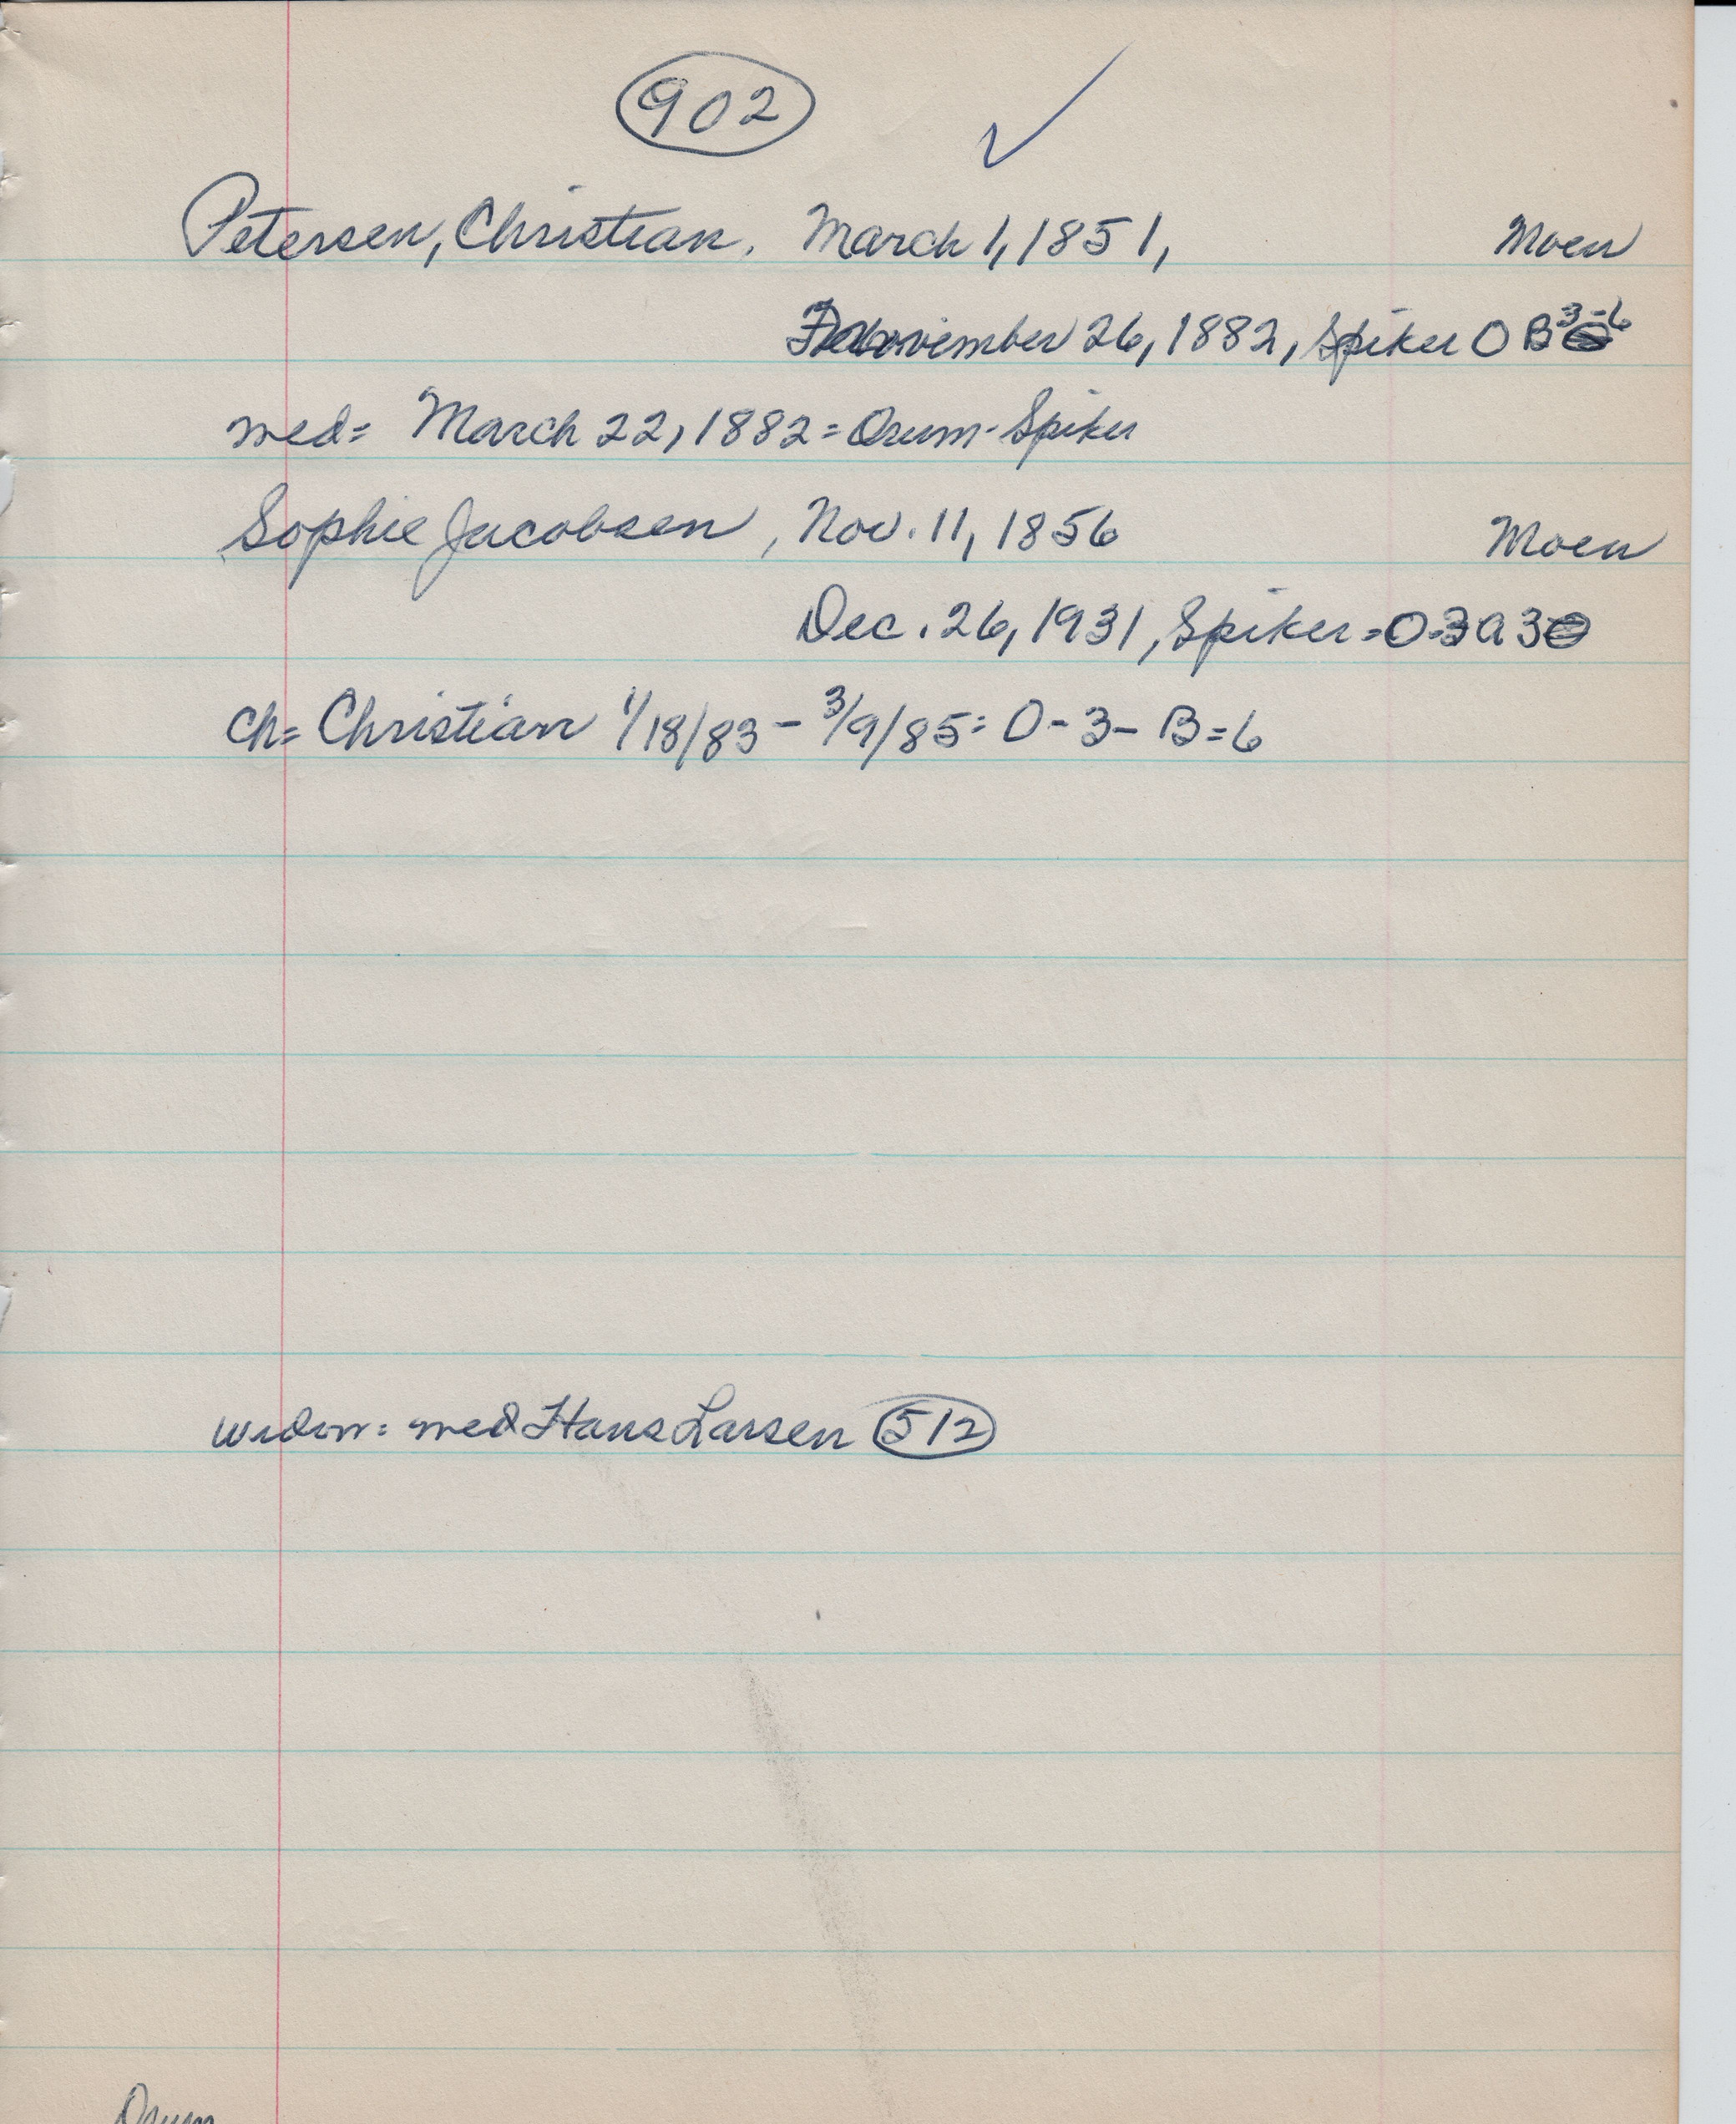 902 ✓
Petersen, Christian. March 1, 1851, Moen
November 26, 1882, Spiker O B 3-6
med= March 22, 1882 = Orum-Spiker
Sophie Jacobsen, Nov. 11, 1856 Moen
Dec. 26, 1931, Spiker=O-3 a 3
Ch= Christian 1/18/83 - 3/9/85: O-3-B=6
widow: med Hans Larsen 512
Orum